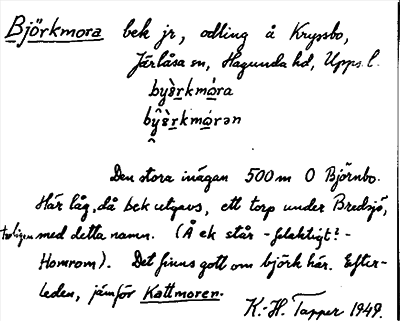 Björkmora bek jr, odling å Kryssbo,
Järlåsa sn, Hagunda hd, Upps. l.
Den stora inägan 500 m O Björnbo.
Här låg, då bek utgavs, ett torp under Bredsjö,
troligen med detta namn. (Å ek står - felaktigt? -
Homrom). Det finns gott om björk här. Efter-
leden, jämför Kattmoren.
K.-H. Tapper 1949.